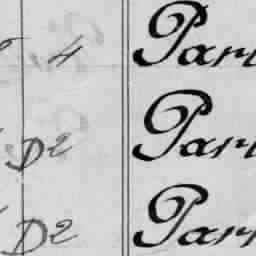 4 Par
D2 Par
D2 Par